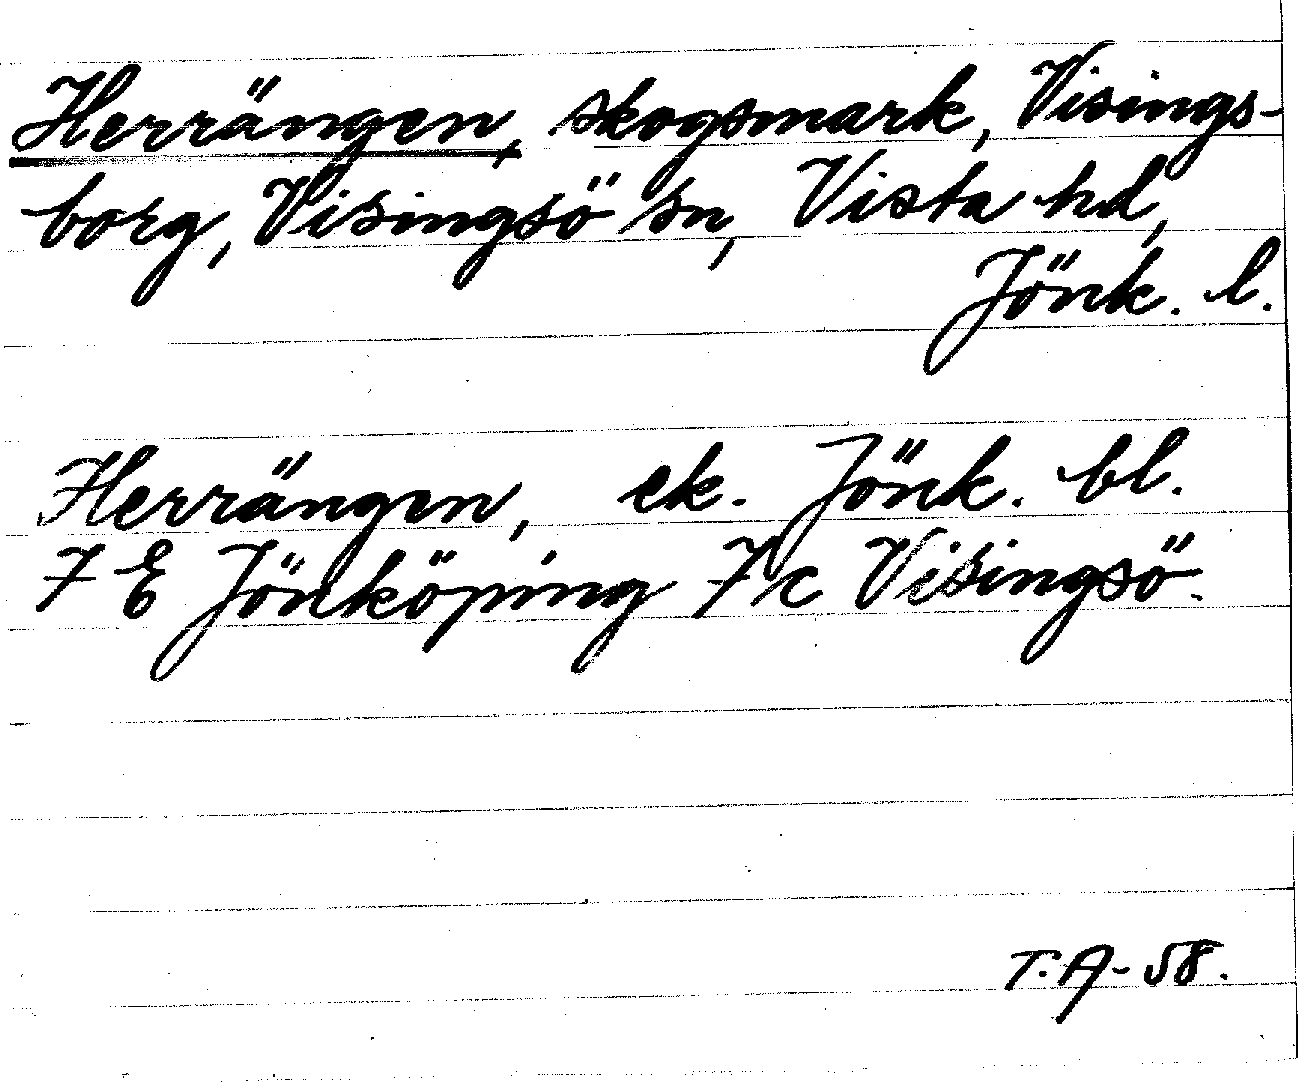 Herrängen, skogsmark, Visings-
borg, Visingsö sn, Vista hd,
Jönk. l.
Herrängen, ek. Jönk. bl.
7 E Jönköping 7c Visingsö.
T.A-58.